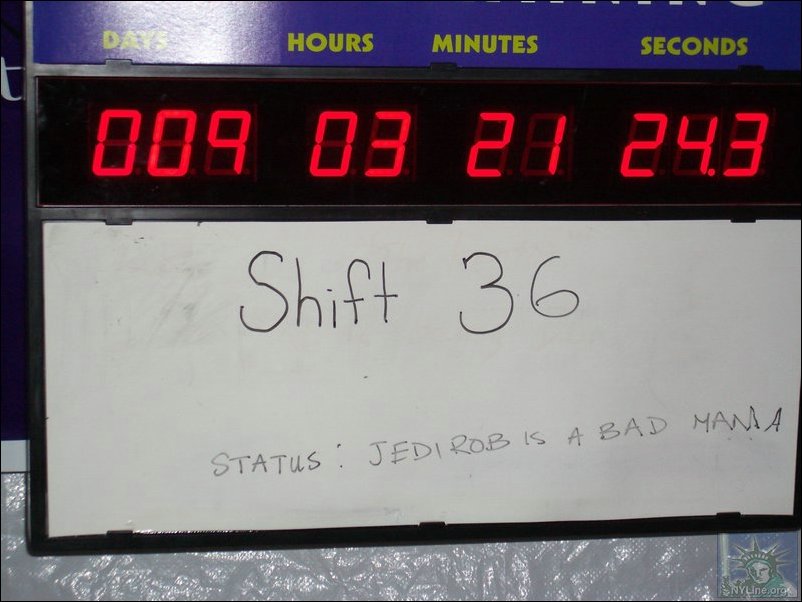 DAYS HOURS MINUTES SECONDS
009 03 21 24.3
Shift 36
STATUS: JEDIROB IS A BAD MAN
NYLine.org